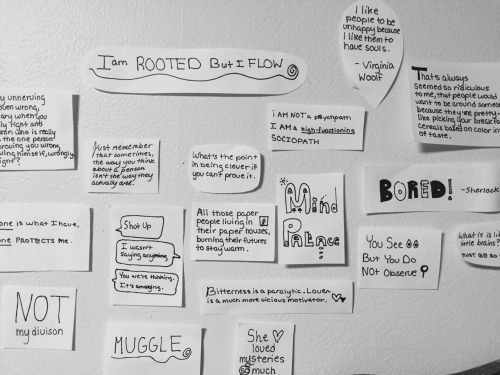 I like
people to be
unhappy because
I like them to
have souls.
- Virginia
Woolf
I am ROOTED But I FLOW
That's always
seemed so ridiculous
to me, that people would
want to be around someone
because they're pretty-
like picking your breakfast
cereals based on color instead
of taste.
unnerving
wrong,
when you
right and
is really
the one person
proving you wrong
himself, wrongly,
right?
Just remember
that sometimes,
the way you think
about a person
isn't the way they
actually are.
What's the point
in being clever if
you can't prove it.
I AM NOT A PSYCHPATH
I AM A HIGH-FUNCTIONING
SOCIOPATH
Mind
Palace
BORED!
-Sherlock
one is what I have,
one PROTECTS me.
Shut Up
I wasn't
saying anything
You were thinking.
It's annoying.
All those paper
people living in
their paper houses,
burning their futures
to stay warm.
You See
But You Do
NOT Observe
What is it like
little brains?
must be so
NOT
my divison
Bitterness is a paralytic. Love
is a much more vicious motivator.
MUGGLE
She
loved
mysteries
so much